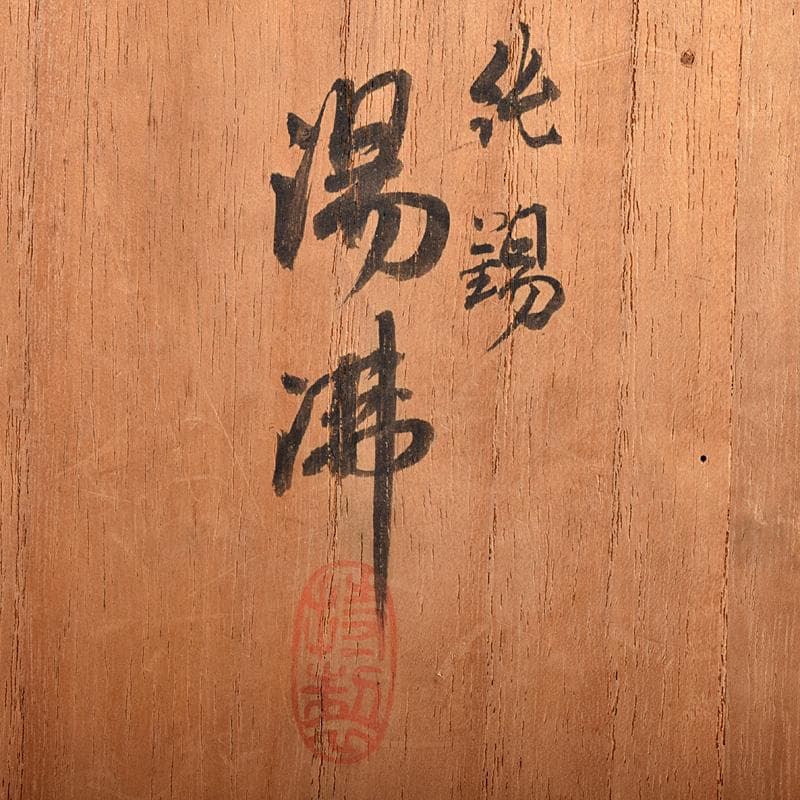 純錫
湯沸